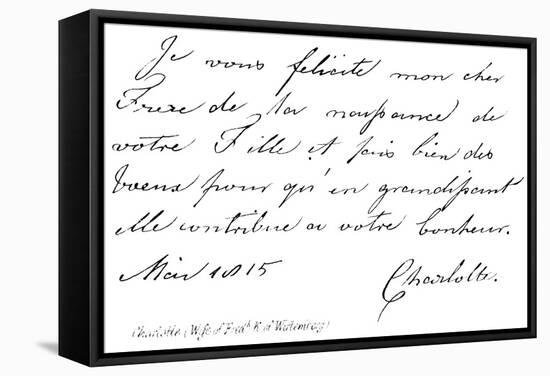 Je vous felicite mon cher
Frere de la naissance de
votre Fille et fais bien des
voeux pour qu'en grandissant
elle contribue a votre bonheur.
Mai 1815 Charlotte.
Charlotte (Wife of Fredk K. of Wirtemburg)